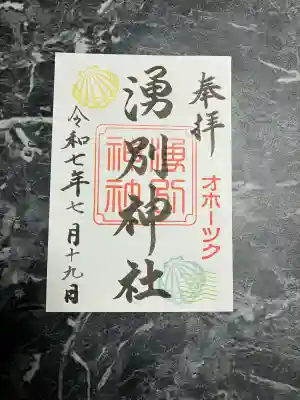 奉拝
オホーツク
湧別神社
湧別神社
令和七年七月十九日